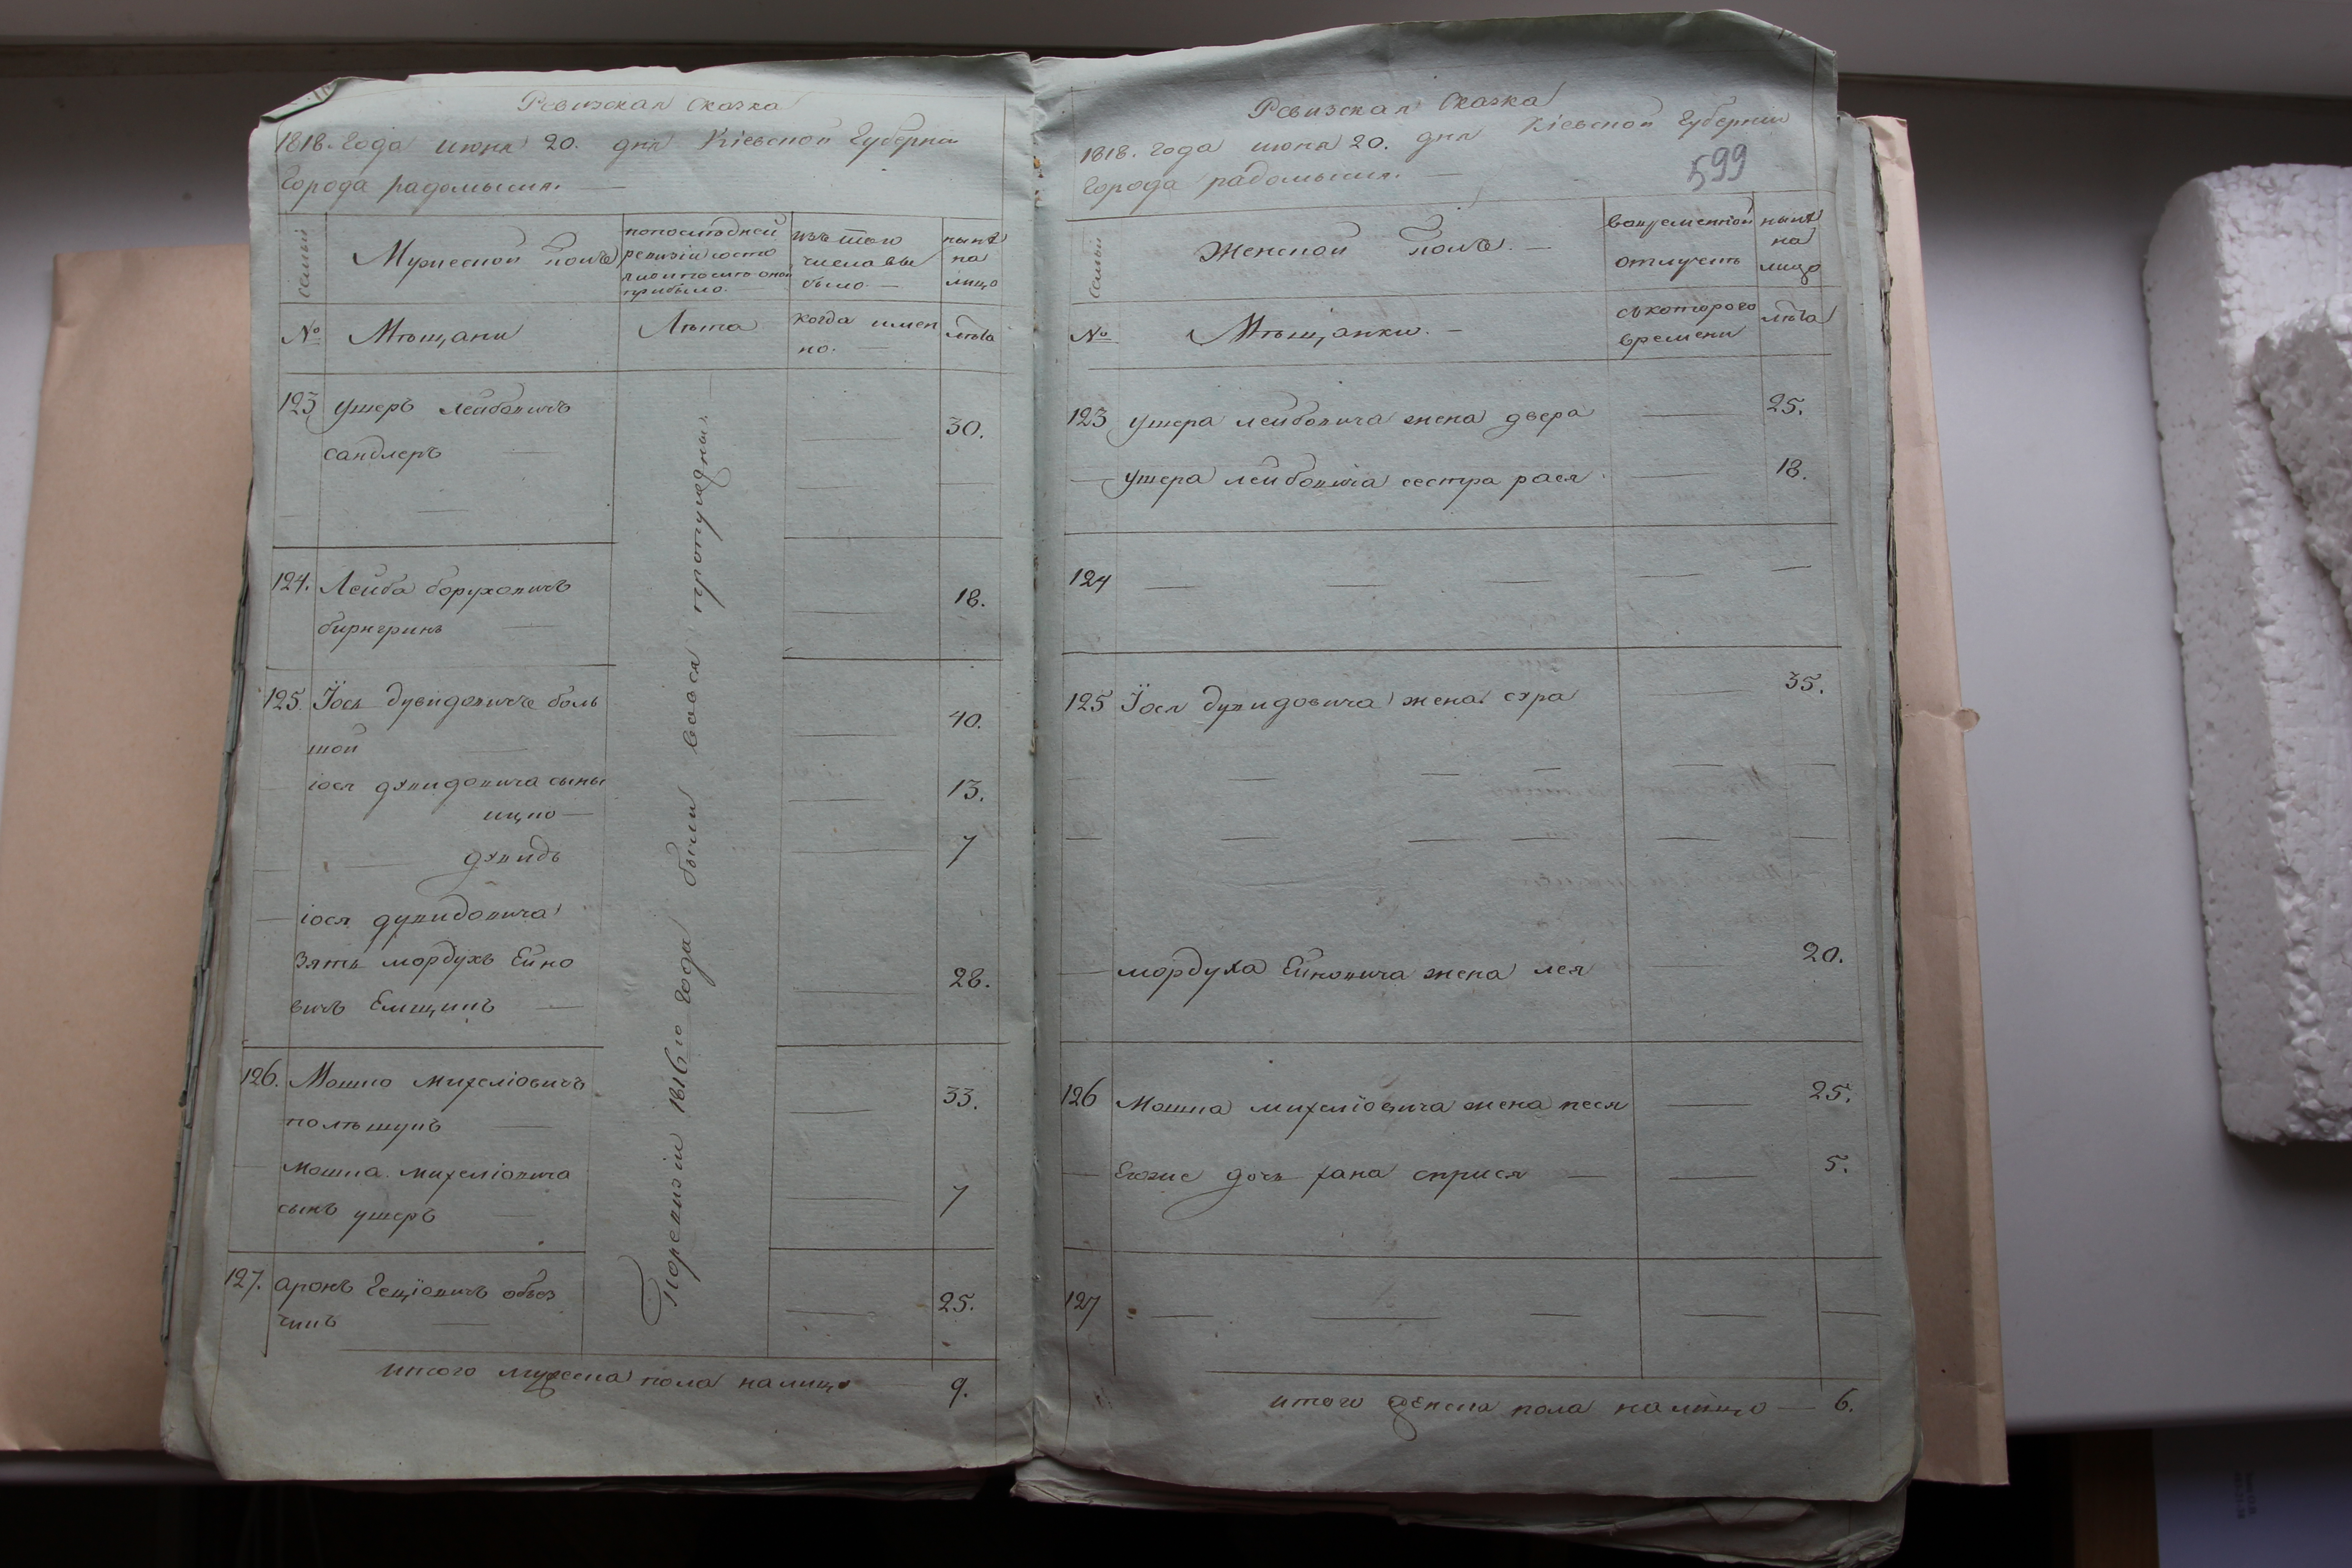 Ревизская Сказка
1818. Года июня 20. дня Кіевской Губерніи
Города радомысля. —
семьи
Мужеской полъ
попоследней
ревизіи состо
яло и после оной
прибыло.
изъ того
числа вы
было —
ныне
на
лицо
№
Мѣщани
Лѣта
когда имен
но.
лѣта
123 ушеръ лейбовичъ
сандлеръ — 30.
124. Лейба боруховичъ
биригринъ — 18.
125 Іось дувидовиче боль
шой — 40.
іося дувидовича сыны
ицко — 13.
— дувидъ 7
— іося дувидовича
зять мордухъ Ейно
вичъ Емщинъ — 28.
126. Мошко михеліовичъ
полѣшукъ — 33.
— мошка михеліовича
сынъ ушеръ — 7
127. аронъ
25.
Поревизіи 1816го года были вовся пропущены
итого мужеска пола налицо 9.
Ревизская Сказка
1818. года июня 20. дня Кіевской Губерніи
города радомысля. —
599
семьи
Женской полъ. —
вовременной
отлучкѣ
ныне
на
лицо
№
Мѣщанки. —
скоторого
времени
лѣта
123 ушера лейбовича жена двера — 25.
— ушера лейбовича сестра рася — 18.
124 — — — — —
125 Іося дувидовича жена сура — 35.
— мордуха Ейновича жена лея 20.
126 Мошка михеліовича жена песя — 25.
— Егоже дочь хана — — 5.
127 — — — — —
итого женска пола налицо — 6.